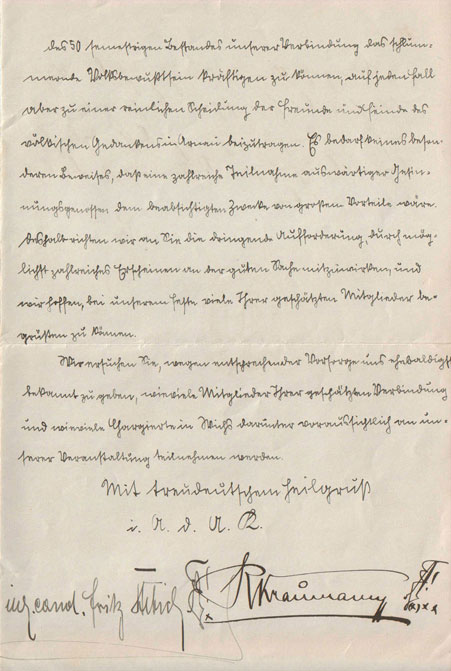 des 50 semestrigen Bestandes unserer Verbindung das schlum-
mernde Volksbewußtsein kräftigen zu können, auf jeden Fall
aber zu einer reinlichen Scheidung der Freunde und Feinde des
völkischen Gedankens in Arnau beizutragen. Es bedarf keines beson-
deren Beweises, daß eine zahlreiche Teilnahme auswärtiger Gesin-
nungsgenossen dem beabsichtigten Zwecke von großem Vorteile wäre.
Deshalb richten wir an Sie die dringende Aufforderung, durch mög-
lichst zahlreiches Erscheinen an der guten Sache mitzuwirken, und
wir hoffen, bei unserem Feste viele Ihrer geschätzten Mitglieder be-
grüßen zu können.
Wir ersuchen Sie, wegen entsprechender Vorsorge uns ehebaldigst
bekannt zu geben, wieviele Mitglieder Ihrer geschätzten Verbindung
und wieviele Chargierte in Wichs darunter voraussichtlich an un-
serer Veranstaltung teilnehmen werden.
Mit treudeutschem Heilgruß
i. A. d. A. K.
cand. Fritz RKraumann